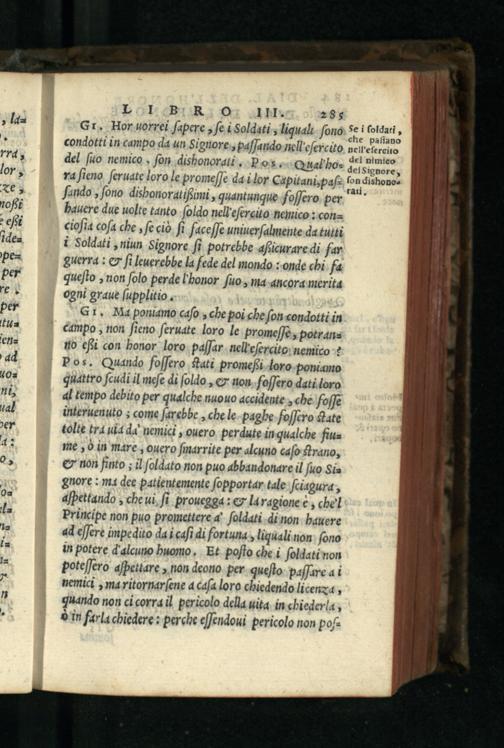 LIBRO III. 285
GI. Hor uorrei sapere, se i Soldati, liquali sono
condotti in campo da un Signore, passando nell'esercito
del suo nemico, son dishonorati. POS. Qual'ho-
ra sieno seruate loro le promesse da i lor Capitani, pas-
sando, sono dishonoratißimi, quantunque fossero per
hauere due uolte tanto soldo nell'esercito nemico: con-
ciosia cosa che, se ciò si facesse uniuersalmente da tutti
i Soldati, niun Signore si potrebbe aßicurare di far
guerra: & si leuerebbe la fede del mondo: onde chi fa
questo, non solo perde l'honor suo, ma ancora merita
ogni graue supplitio.
GI. Ma poniamo caso, che poi che son condotti in
campo, non sieno seruate loro le promesse, potran-
no eßi con honor loro passar nell'esercito nemico?
POS. Quando fossero stati promeßi loro poniamo
quattro scudi il mese di soldo, & non fossero dati loro
al tempo debito per qualche nuouo accidente, che fosse
interuenuto; come sarebbe, che le paghe fossero state
tolte tra uia da' nemici, ouero perdute in qualche fiu-
me, ò in mare, ouero smarrite per alcuno caso strano,
& non finto; il soldato non puo abbandonare il suo Si-
gnore: ma dee patientemente sopportar tale sciagura,
aspettando, che ui si prouegga: & la ragione è, che'l
Principe non puo promettere a' soldati di non hauere
ad essere impedito da i casi di fortuna, liquali non sono
in potere d'alcuno huomo. Et posto che i soldati non
potessero aspettare, non deono per questo passare a i
nemici, ma ritornarsene a casa loro chiedendo licenza,
quando non ci corra il pericolo della uita in chiederla,
ò in farla chiedere: perche essendoui pericolo non pos-
Se i soldati,
che passano
nell'esercito
del nimico
del Signore,
son dishono-
rati.